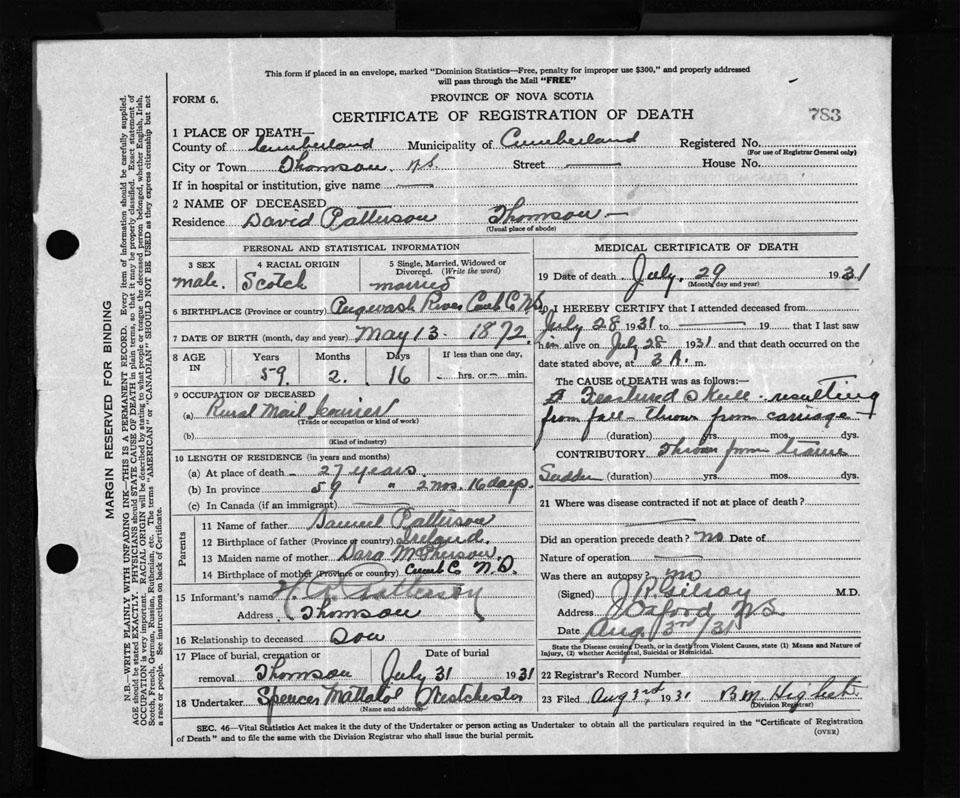 This form if placed in an envelope, marked "Dominion Statistics—Free, penalty for improper use $300," and properly addressed
will pass through the Mail "FREE"
FORM 6.
PROVINCE OF NOVA SCOTIA
CERTIFICATE OF REGISTRATION OF DEATH
783
1 PLACE OF DEATH—
County of Cumberland Municipality of Cumberland Registered No.
(For use of Registrar General only)
City or Town Thomson N.S. Street — House No.
If in hospital or institution, give name —
2 NAME OF DECEASED —
Residence David Patterson Thomson —
(Usual place of abode)
PERSONAL AND STATISTICAL INFORMATION
3 SEX 4 RACIAL ORIGIN 5 Single, Married, Widowed or
Divorced. (Write the word)
male. Scotch married
6 BIRTHPLACE (Province or country) Pugwash River Cumb C. N.S.
7 DATE OF BIRTH (month, day and year) May 13 - 1872.
8 AGE IN Years Months Days If less than one day,
59 2. 16 — hrs. or — min.
9 OCCUPATION OF DECEASED
(a) Rural Mail Courier
(Trade or occupation or kind of work)
(b)
(Kind of industry)
10 LENGTH OF RESIDENCE (in years and months)
(a) At place of death - 27 years.
(b) In province 59 " 2 mos. 16 days.
(c) In Canada (if an immigrant) —
Parents
11 Name of father Samuel Patterson
12 Birthplace of father (Province or country) Ireland.
13 Maiden name of mother McPherson
14 Birthplace of mother (Province or country) Cumb C.
15 Informant's name Patterson
Address Thomson
16 Relationship to deceased Son
17 Place of burial, cremation or removal Date of burial
Thomson July 31 1931
18 Undertaker Spencer Westchester
(Name and address)
MEDICAL CERTIFICATE OF DEATH
19 Date of death July. 29 1931
(Month day and year)
20 I HEREBY CERTIFY that I attended deceased from
July 28 1931 to — 19 that I last saw
him alive on July 28 1931 and that death occurred on the
date stated above, at 3 A. m.
The CAUSE OF DEATH was as follows:—
Fractured Skull - resulting
from fall - thrown from carriage
(duration) yrs. mos. dys.
CONTRIBUTORY Thrown from
Sudden (duration) yrs. mos. dys.
21 Where was disease contracted if not at place of death?
—
Did an operation precede death? no Date of
Nature of operation —
Was there an autopsy? no
(Signed) Gilroy M.D.
Address Oxford N.S.
Date Aug 3rd/31
State the Disease causing Death, or in death from Violent Causes, state (1) Means and Nature of
Injury, (2) whether Accidental, Suicidal or Homicidal.
22 Registrar's Record Number
23 Filed Aug 3rd, 1931 B. M.
(Division Registrar)
SEC. 46—Vital Statistics Act makes it the duty of the Undertaker or person acting as Undertaker to obtain all the particulars required in the "Certificate of Registration
of Death" and to file the same with the Division Registrar who shall issue the burial permit.
(OVER)
MARGIN RESERVED FOR BINDING
N.B.—WRITE PLAINLY WITH UNFADING INK—THIS IS A PERMANENT RECORD. Every item of information should be carefully supplied.
AGE should be stated EXACTLY. PHYSICIANS should STATE CAUSE OF DEATH in plain terms, so that it may be properly classified. Exact statement of
OCCUPATION is very important. RACIAL ORIGIN will be described by stating to what people or tongue the deceased person belonged, whether English, Irish,
Scotch, French, German, Russian, Ruthenian, etc. The terms "AMERICAN" or "CANADIAN" SHOULD NOT BE USED as they express citizenship but not
a race or people. See instructions on back of Certificate.